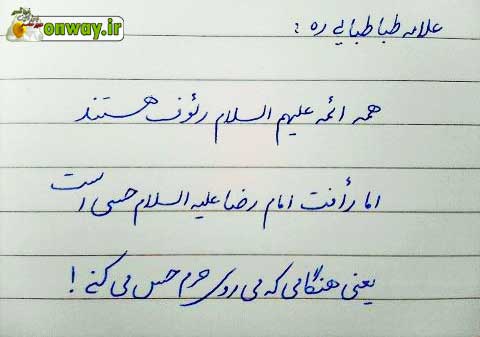 onway.ir
علامه طباطبایی ره :
همه ائمه علیهم السلام رئوف هستند
اما رأفت امام رضا علیه السلام حسی است
یعنی هنگامی که می روی حرم حس می کنی !